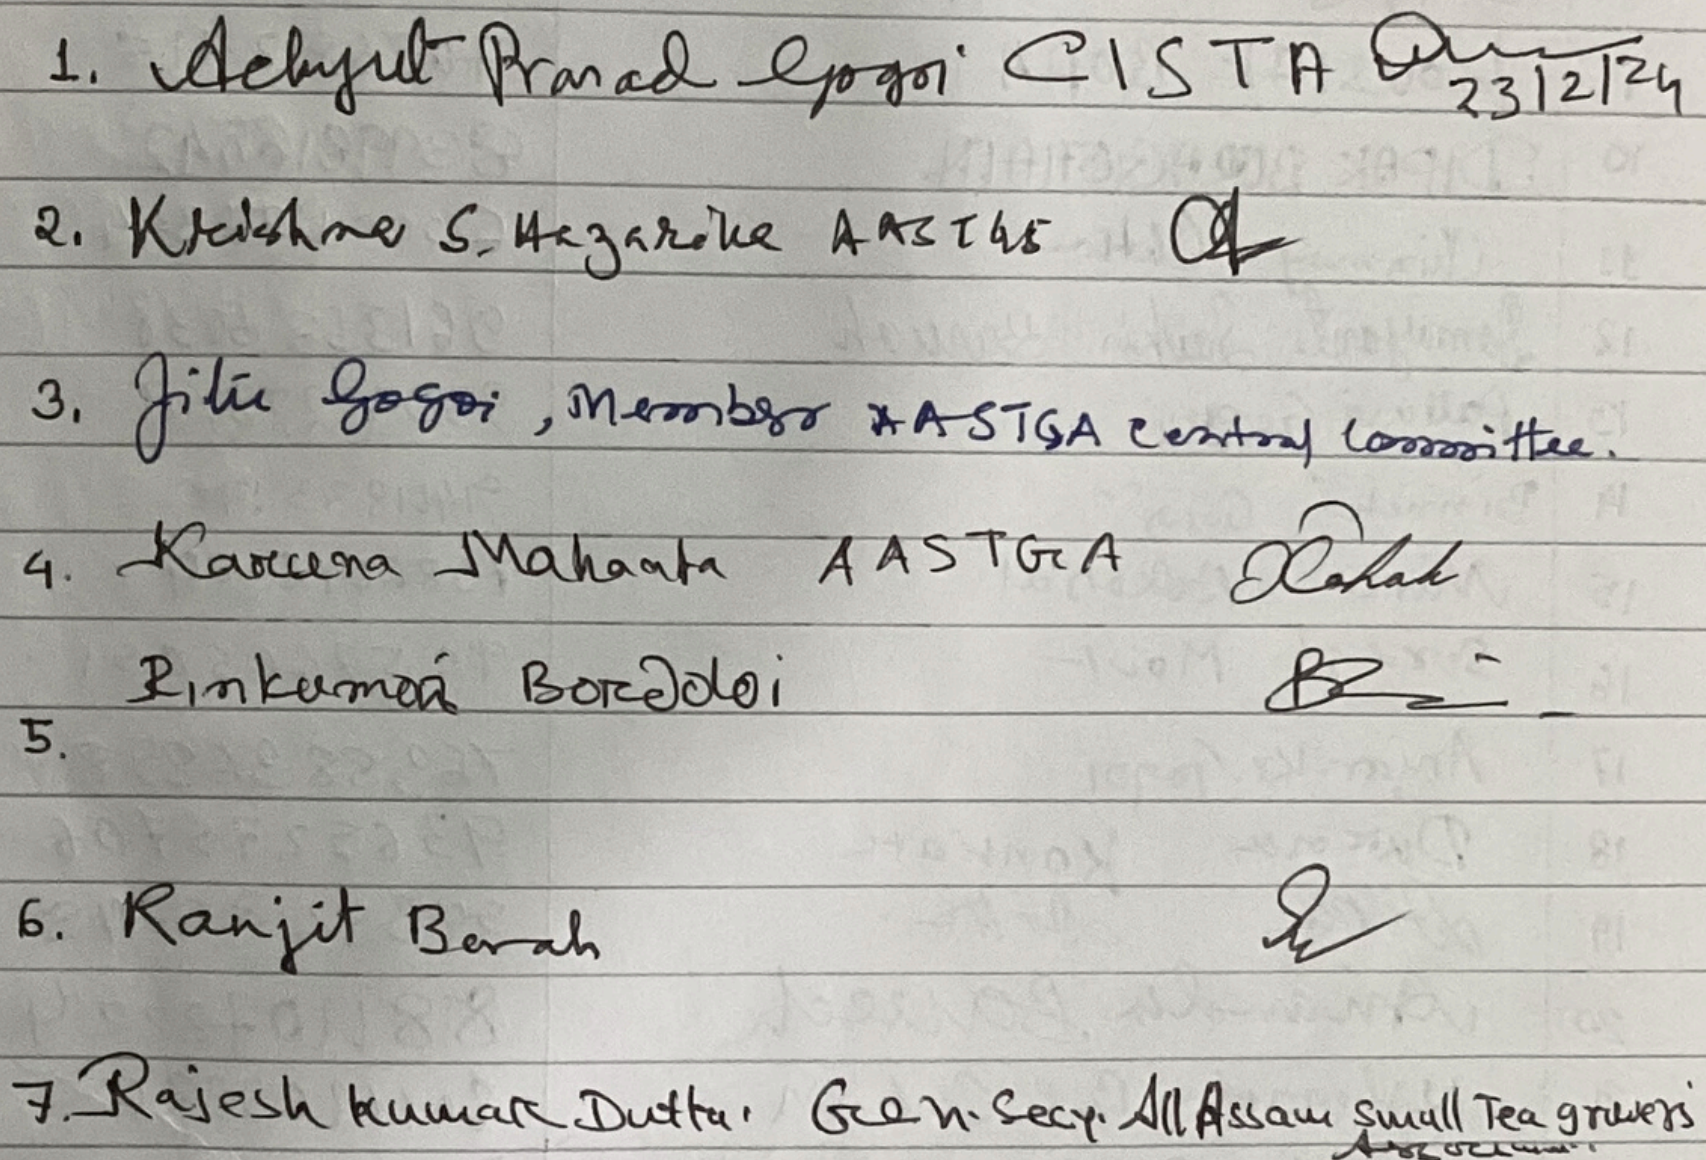 1. Achyut Prasad Gogoi CISTA
23/2/24
2. Krishna S. Hazarika
3. Jitu Gogoi, Member AASTGA Central Committee.
4. Karuna Mahanta AASTGA
Rinkumoni Bordoloi
5.
6. Ranjit Borah
7. Rajesh Kumar Dutta. Gen. Secy. All Assam Small Tea growers